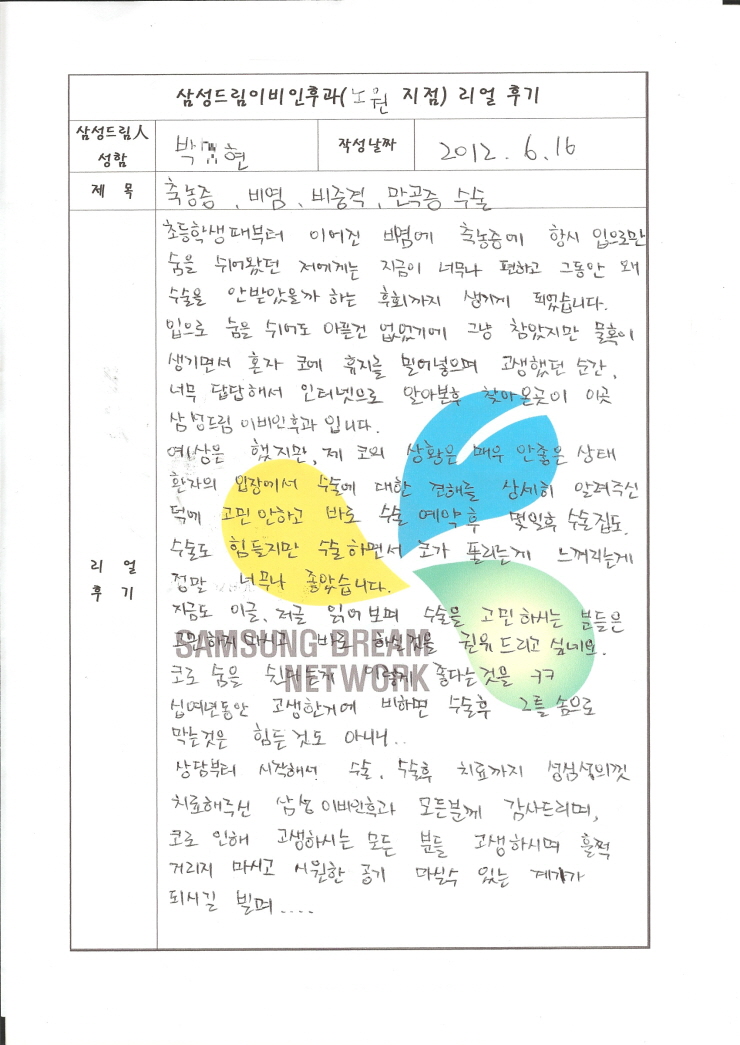 삼성드림이비인후과(노원 지점) 리얼 후기
삼성드림人
성함
박 현
작성날짜
2012. 6. 16
제 목
축농증, 비염, 비중격, 만곡증 수술
리 얼
후 기
초등학생때부터 이어진 비염에 축농증에 항시 입으로만
숨을 쉬어왔던 저에게는 지금이 너무나 편하고 그동안 왜
수술을 안받았을까 하는 후회까지 생기게 되었습니다.
입으로 숨을 쉬어도 아픈건 없었기에 그냥 참았지만 물혹이
생기면서 혼자 코에 휴지를 밀어넣으며 고생했던 순간,
너무 답답해서 인터넷으로 알아본후 찾아온곳이 이곳
삼성드림 이비인후과 입니다.
예상은 했지만, 제 코의 상황은 매우 안좋은 상태
환자의 입장에서 수술에 대한 견해를 상세히 알려주신
덕에 고민 안하고 바로 수술 예약후 몇일후 수술집도.
수술도 힘들지만 수술하면서 코가 풀리는게 느껴지는게
정말 너무나 좋았습니다.
지금도 이글, 저글 읽어보며 수술을 고민 하시는 분들은
고민하지 마시고 바로 하실것을 권유 드리고 싶네요.
SAMSUNG DREAM
NETWORK
코로 숨을 쉰다는게 이렇게 좋다는것을 ㅋㅋ
십여년동안 고생한거에 비하면 수술후 2틀 솜으로
막는것은 힘든것도 아니니..
상담부터 시작해서 수술, 수술후 치료까지 성심성의껏
치료해주신 삼성 이비인후과 모든분께 감사드리며,
코로 인해 고생하시는 모든 분들 고생하시며 훌쩍
거리지 마시고 시원한 공기 마실수 있는 계기가
되시길 빌며....